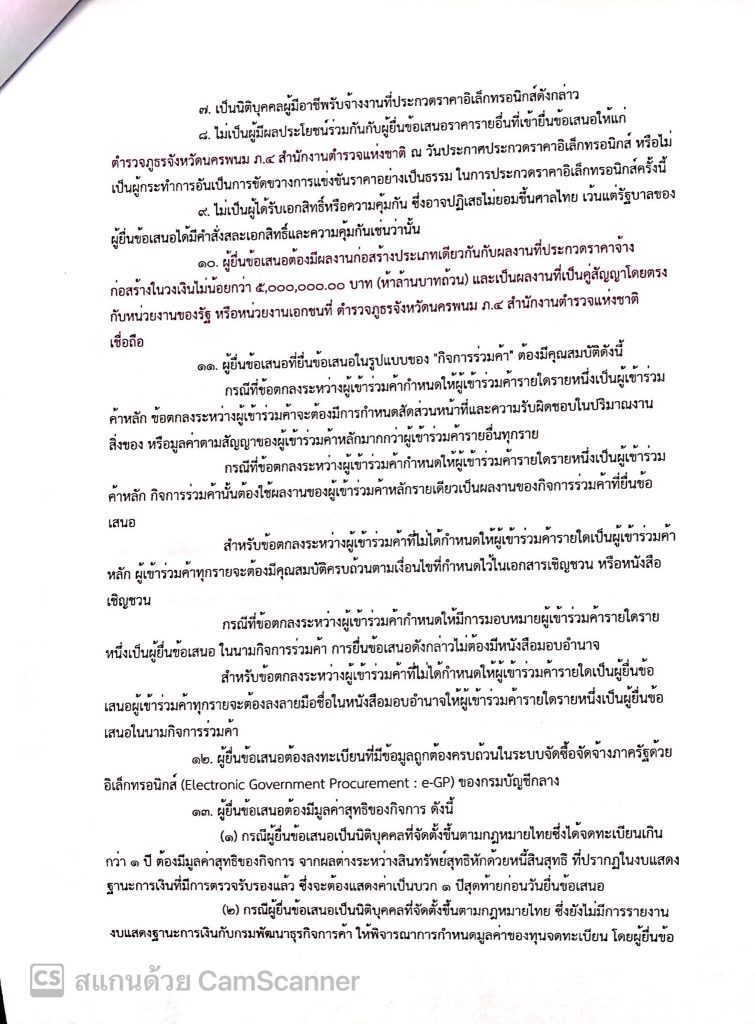 ๗. เป็นนิติบุคคลผู้มีอาชีพรับจ้างงานที่ประกวดราคาอิเล็กทรอนิกส์ดังกล่าว
๘. ไม่เป็นผู้มีผลประโยชน์ร่วมกันกับผู้ยื่นข้อเสนอราคารายอื่นที่เข้ายื่นข้อเสนอให้แก่
ตำรวจภูธรจังหวัดนครพนม ภ.๔ สำนักงานตำรวจแห่งชาติ ณ วันประกาศประกวดราคาอิเล็กทรอนิกส์ หรือไม่
เป็นผู้กระทำการอันเป็นการขัดขวางการแข่งขันราคาอย่างเป็นธรรม ในการประกวดราคาอิเล็กทรอนิกส์ครั้งนี้
๙. ไม่เป็นผู้ได้รับเอกสิทธิ์หรือความคุ้มกัน ซึ่งอาจปฏิเสธไม่ยอมขึ้นศาลไทย เว้นแต่รัฐบาลของ
ผู้ยื่นข้อเสนอได้มีคำสั่งสละเอกสิทธิ์และความคุ้มกันเช่นว่านั้น
๑๐. ผู้ยื่นข้อเสนอต้องมีผลงานก่อสร้างประเภทเดียวกันกับผลงานที่ประกวดราคาจ้าง
ก่อสร้างในวงเงินไม่น้อยกว่า ๕,๐๐๐,๐๐๐.๐๐ บาท (ห้าล้านบาทถ้วน) และเป็นผลงานที่เป็นคู่สัญญาโดยตรง
กับหน่วยงานของรัฐ หรือหน่วยงานเอกชนที่ ตำรวจภูธรจังหวัดนครพนม ภ.๔ สำนักงานตำรวจแห่งชาติ
เชื่อถือ
๑๑. ผู้ยื่นข้อเสนอที่ยื่นข้อเสนอในรูปแบบของ "กิจการร่วมค้า" ต้องมีคุณสมบัติดังนี้
กรณีที่ข้อตกลงระหว่างผู้เข้าร่วมค้ากำหนดให้ผู้เข้าร่วมค้ารายใดรายหนึ่งเป็นผู้เข้าร่วม
ค้าหลัก ข้อตกลงระหว่างผู้เข้าร่วมค้าจะต้องมีการกำหนดสัดส่วนหน้าที่และความรับผิดชอบในปริมาณงาน
สิ่งของ หรือมูลค่าตามสัญญาของผู้เข้าร่วมค้าหลักมากกว่าผู้เข้าร่วมค้ารายอื่นทุกราย
กรณีที่ข้อตกลงระหว่างผู้เข้าร่วมค้ากำหนดให้ผู้เข้าร่วมค้ารายใดรายหนึ่งเป็นผู้เข้าร่วม
ค้าหลัก กิจการร่วมค้านั้นต้องใช้ผลงานของผู้เข้าร่วมค้าหลักรายเดียวเป็นผลงานของกิจการร่วมค้าที่ยื่นข้อ
เสนอ
สำหรับข้อตกลงระหว่างผู้เข้าร่วมค้าที่ไม่ได้กำหนดให้ผู้เข้าร่วมค้ารายใดเป็นผู้เข้าร่วมค้า
หลัก ผู้เข้าร่วมค้าทุกรายจะต้องมีคุณสมบัติครบถ้วนตามเงื่อนไขที่กำหนดไว้ในเอกสารเชิญชวน หรือหนังสือ
เชิญชวน
กรณีที่ข้อตกลงระหว่างผู้เข้าร่วมค้ากำหนดให้มีการมอบหมายผู้เข้าร่วมค้ารายใดราย
หนึ่งเป็นผู้ยื่นข้อเสนอ ในนามกิจการร่วมค้า การยื่นข้อเสนอดังกล่าวไม่ต้องมีหนังสือมอบอำนาจ
สำหรับข้อตกลงระหว่างผู้เข้าร่วมค้าที่ไม่ได้กำหนดให้ผู้เข้าร่วมค้ารายใดเป็นผู้ยื่นข้อ
เสนอผู้เข้าร่วมค้าทุกรายจะต้องลงลายมือชื่อในหนังสือมอบอำนาจให้ผู้เข้าร่วมค้ารายใดรายหนึ่งเป็นผู้ยื่นข้อ
เสนอในนามกิจการร่วมค้า
๑๒. ผู้ยื่นข้อเสนอต้องลงทะเบียนที่มีข้อมูลถูกต้องครบถ้วนในระบบจัดซื้อจัดจ้างภาครัฐด้วย
อิเล็กทรอนิกส์ (Electronic Government Procurement : e-GP) ของกรมบัญชีกลาง
๑๓. ผู้ยื่นข้อเสนอต้องมีมูลค่าสุทธิของกิจการ ดังนี้
(๑) กรณีผู้ยื่นข้อเสนอเป็นนิติบุคคลที่จัดตั้งขึ้นตามกฎหมายไทยซึ่งได้จดทะเบียนเกิน
กว่า ๑ ปี ต้องมีมูลค่าสุทธิของกิจการ จากผลต่างระหว่างสินทรัพย์สุทธิหักด้วยหนี้สินสุทธิ ที่ปรากฏในงบแสดง
ฐานะการเงินที่มีการตรวจรับรองแล้ว ซึ่งจะต้องแสดงค่าเป็นบวก ๑ ปีสุดท้ายก่อนวันยื่นข้อเสนอ
(๒) กรณีผู้ยื่นข้อเสนอเป็นนิติบุคคลที่จัดตั้งขึ้นตามกฎหมายไทย ซึ่งยังไม่มีการรายงาน
งบแสดงฐานะการเงินกับกรมพัฒนาธุรกิจการค้า ให้พิจารณาการกำหนดมูลค่าของทุนจดทะเบียน โดยผู้ยื่นข้อ
CS สแกนด้วย CamScanner